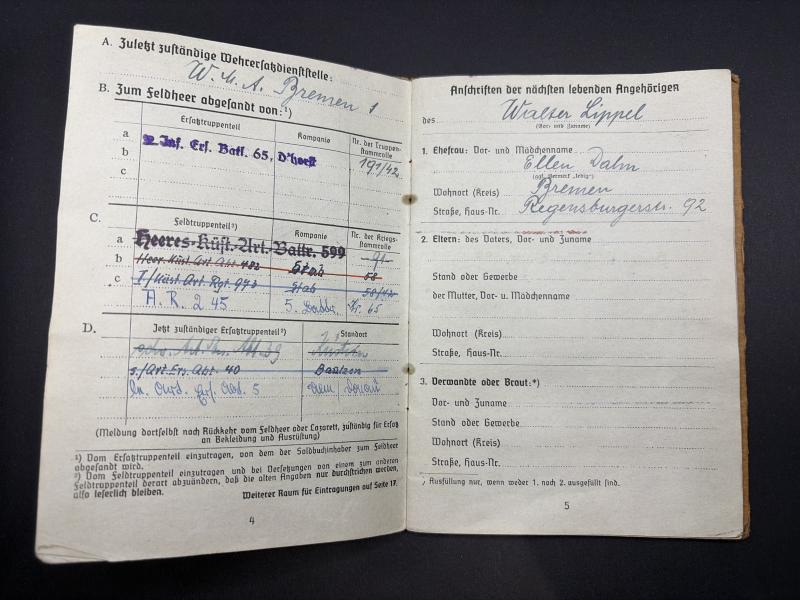 A. Zuletzt zuständige Wehrersatzdienststelle:
W. M. A. Bremen 1
B. Zum Feldheer abgesandt von:¹)
Ersatztruppenteil Kompanie Nr. der Truppenstammrolle
a 2. Inf. Ers. Batl. 65, D'horst 191/42
b
c
C. Feldtruppenteil²) Kompanie Nr. der Kriegsstammrolle
a Heeres-Küst.-Art.-Battr. 599 91
b Heer. Küst. Art. Abt. Stab 58
c I/Küst. Art. Rgt. 973 Stab 58/42
A. R. 245 5. Nr. 65
D. Jetzt zuständiger Ersatztruppenteil²) Standort
Art. Abt. 39 Küstrin
s./Art. Ers. Abt. 40 Bautzen
Ers. Abt. 5 Ulm/Donau
(Meldung dortselbst nach Rückkehr vom Feldheer oder Lazarett, zuständig für Ersatz
an Bekleidung und Ausrüstung)
¹) Vom Ersatztruppenteil einzutragen, von dem der Soldbuchinhaber zum Feldheer
abgesandt wird.
²) Vom Feldtruppenteil einzutragen und bei Versetzungen von einem zum anderen
Feldtruppenteil derart abzuändern, daß die alten Angaben nur durchstrichen werden,
also leserlich bleiben.
Weiterer Raum für Eintragungen auf Seite 17.
4
Anschriften der nächsten lebenden Angehörigen
des Walter Lippel
(Vor- und Zuname)
1. Ehefrau: Vor- und Mädchenname
Ellen Dahn
(ggf. Vermerk „ledig“)
Wohnort (Kreis) Bremen
Straße, Haus-Nr. Regensburgerstr. 92
2. Eltern: des Vaters, Vor- und Zuname
Stand oder Gewerbe
der Mutter, Vor- u. Mädchenname
Wohnort (Kreis)
Straße, Haus-Nr.
3. Verwandte oder Braut:*)
Vor- und Zuname
Stand oder Gewerbe
Wohnort (Kreis)
Straße, Haus-Nr.
*) Ausfüllung nur, wenn weder 1. noch 2. ausgefüllt sind.
5